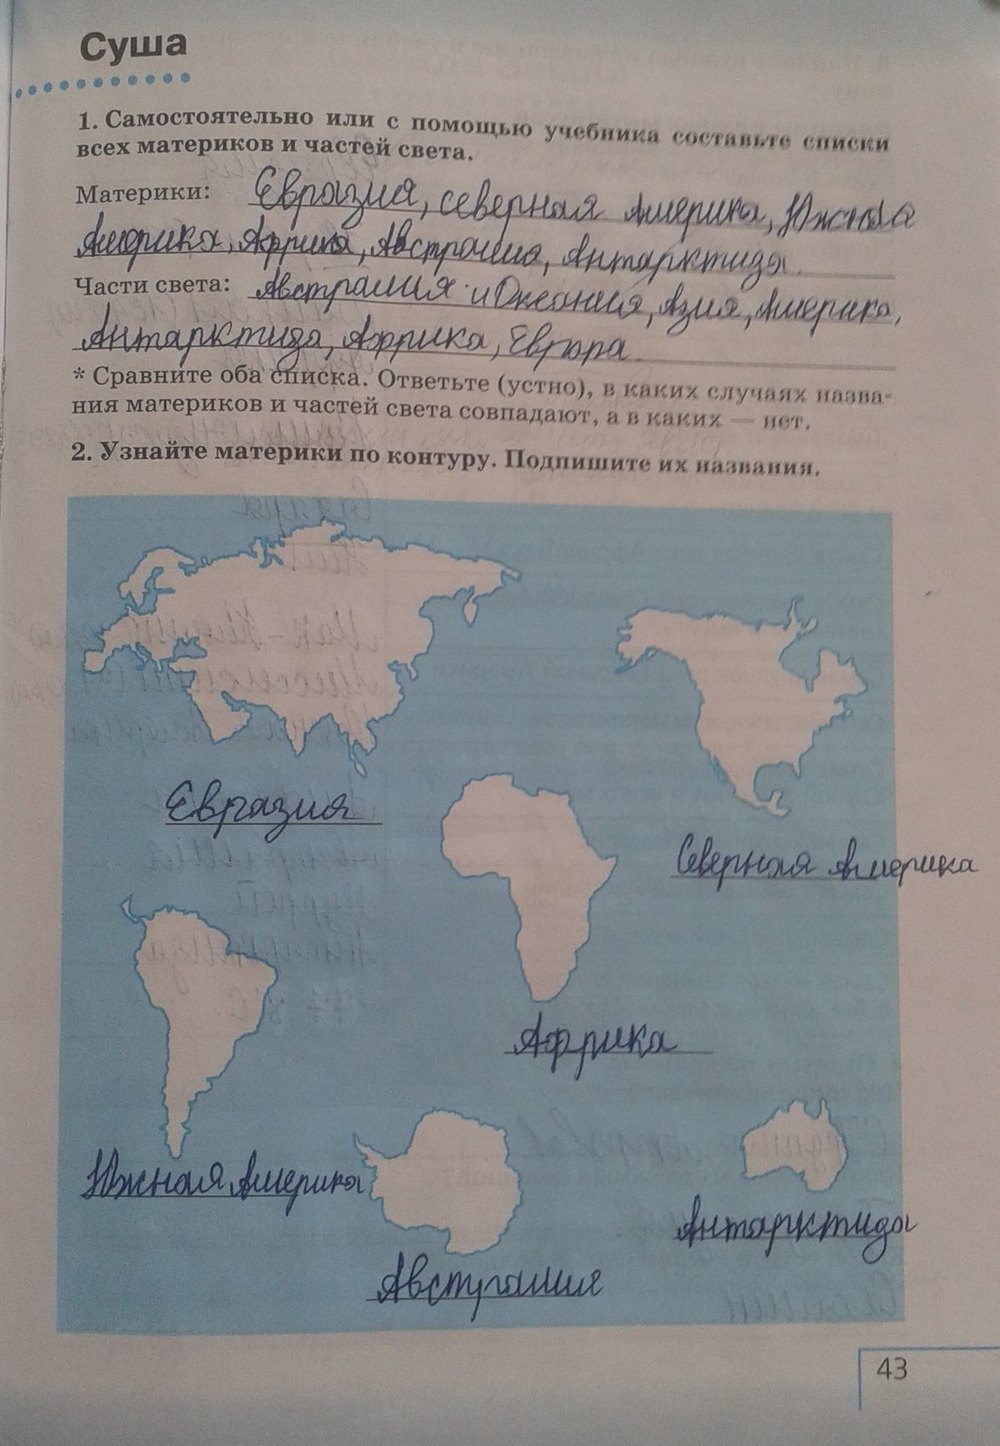 Суша
1. Самостоятельно или с помощью учебника составьте списки
всех материков и частей света.
Материки: Евразия, северная Америка, Южная
Америка, Африка, Австралия, Антарктида.
Части света: Австралия и Океания, Азия, Америка,
Антарктида, Африка, Европа.
* Сравните оба списка. Ответьте (устно), в каких случаях назва-
ния материков и частей света совпадают, а в каких — нет.
2. Узнайте материки по контуру. Подпишите их названия.
Евразия
Северная Америка
Африка
Южная Америка
Антарктида
Австралия
43